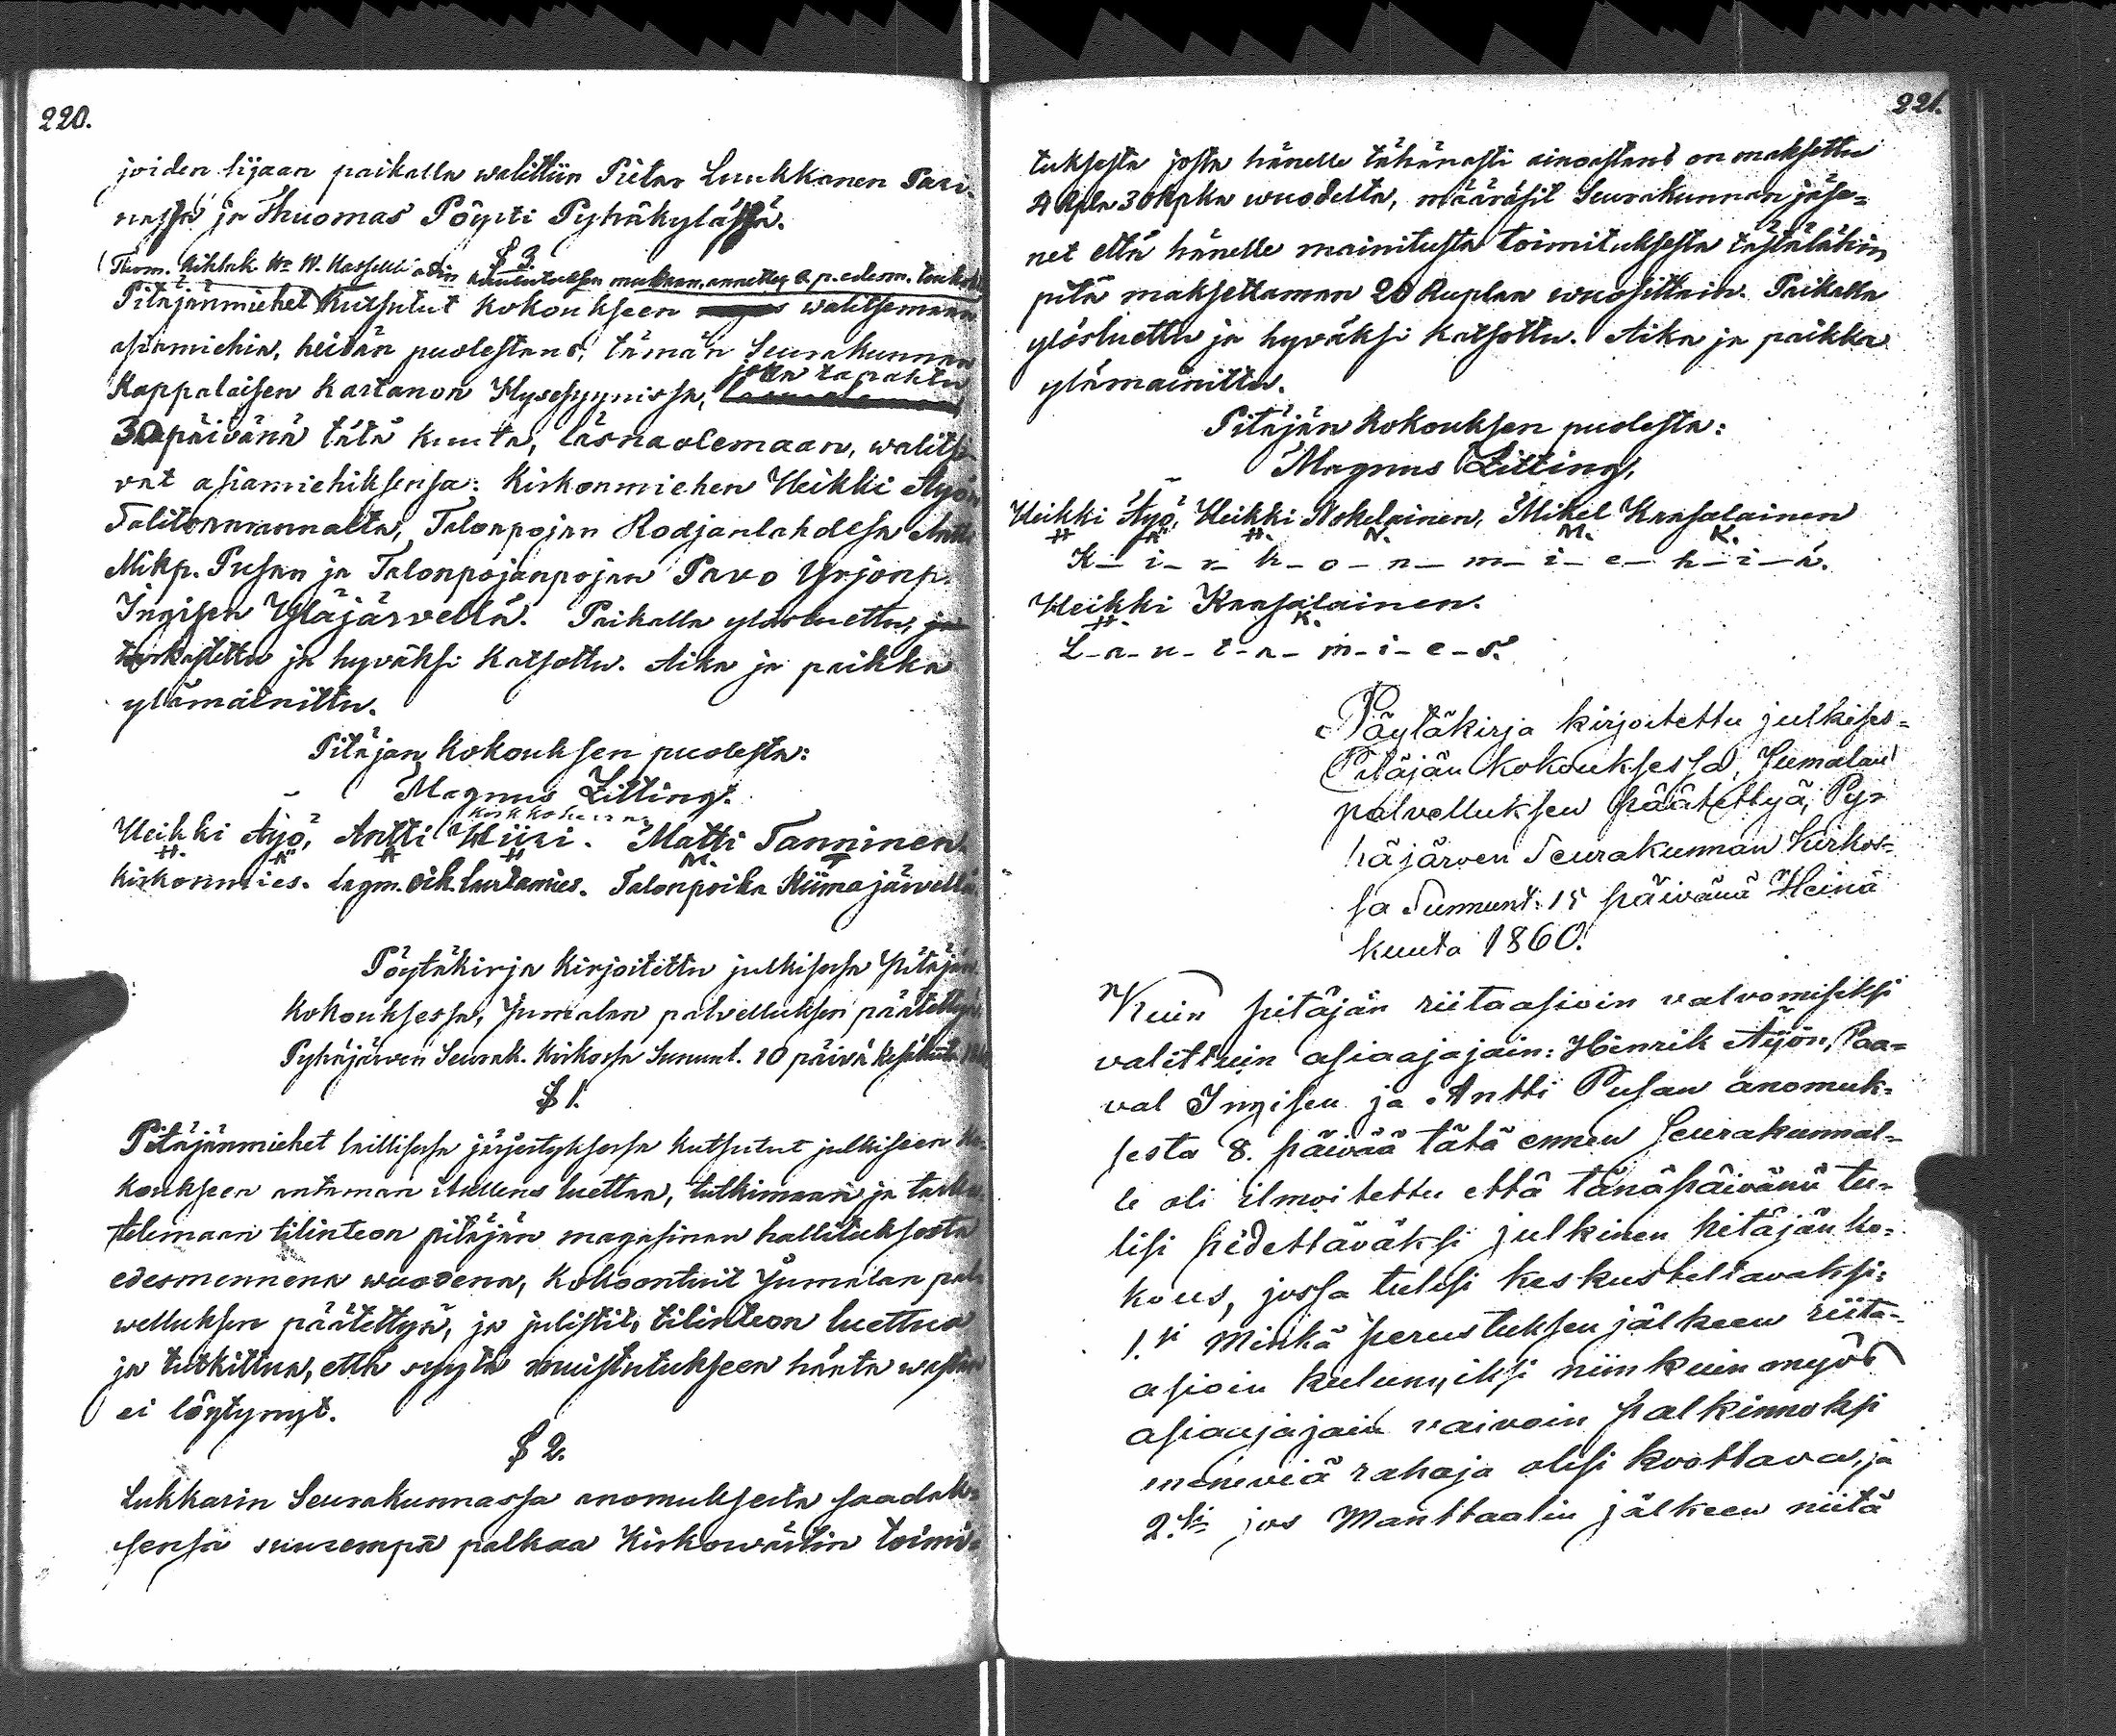 220.
joiden sijaan paikalla walittiin Pietar Luukkanen Pari-
nassa ja Thuomas Pöyti Pyhäkylässä.
§ 3.
kuulutuksen mukaan, annettu 6 p. edesm. toukok.
Pitäjänmiehet kutsutut kokoukseen walitsemaan
asiamiehiä, heidän puolestans, tämän Seurakunnan
joka tapahtuu
Kappalaisen kartanon Huvesyynissa,
30 päivänä tätä kuuta, läsnäolemaan, walitsi-
vat asiamiehiksensa: Kirkonmiehen Heikki Äyön
Talitonmannalta, Talonpojan Rodjanlahdesa Antti
Mikp. Pusan ja Talonpojanpojan Pavo Yrjönp.
Ingisen Yläjärvellä. Paikalla ylösluettu, ja
tarkastettu ja hyväksi katsottu. Aika ja paikka
ylämainittu.
Pitäjän kokouksen puolesta:
Magnus Zitting.
Heikki Äyö, Antti Hiiri. Matti Tanninen.
H. Ä A H M. T
kirkonmies. Lagm. oik. lautamies. Talonpoika Riimajärvellä
Pöytäkirja kirjoitettu julkisessa Pitäjän
kokouksessa, Jumalan palvelluksen päätettyä
Pyhäjärven Seurak. Kirkossa Sununt. 10 päivä kesäkuuta
§ 1.
Pitäjänmiehet laillisessa järjestyksessä kutsutut julkiseen ko-
koukseen antaman itsellens luettaa, tutkimaan ja tarkas-
telemaan tilinteon pitäjän magasinan hallituksesta
edesmennenä wuodena, kokoontuit Jumalan pal-
welluksen päätettyä, ja julistit, tilinteon luettua
ja tutkittua, että syytä muistutukseen häntä wastan
ei löytynyt.
§ 2.
Lukkarin Seurakunnassa anomuksesta saadak-
sensa suurempa palkaa Kirkowärtin toimi-
221.
tuksesta josta hänelle tähänasti ainoastans on maksettu
4 Rpla 30 kpka wuodelta, määräsit Seurakunnan jäse-
net että hänelle mainitusta toimituksesta tästäläkin
pitä maksettaman 20 Ruplaa wuosittain. Paikalla
ylösluettu ja hyväksi katsottu. Aika ja paikka
ylämainittu.
Pitäjän kokouksen puolesta:
Magnus Zitting,
Heikki Äyö, Heikki Nokelainen, Mikel Krasalainen
H Ä H. N. M. K.
K - i - r - k - o - n - m - i - e - h - i - ä.
Heikki Krasalainen.
H. K.
L - a - u - t - a - m - i - e - s.
Pöytäkirja kirjoitettu julkises-
Pitäjän kokouksessa, Jumalan
palvelluksen päätettyä, Py-
häjärven Seurakunnan Kirkos-
sa Sunnunt: 15 päivänä Heinä
kuuta 1860.
Kuin pitäjän riitaasioin valvomiseksi
valittuin asiaajajain: Hinrik Äyön, Paa-
val Ingisen ja Antti Pusan anomuk-
sesta 8. päivää tätä ennen Seurakunnal-
le oli ilmoitettu että tänäpäivänä tu-
lisi pidettäväksi julkinen pitäjän ko-
kous, jossa tulisi keskusteltavaksi:
1.si Minkä perustuksen jälkeen riita-
asioin kulungiksi niinkuin myös
asiaajajain vaivoin palkinnoksi
meneviä rahoja olisi koottava, ja
2.si jos Manttaalin jälkeen niitä